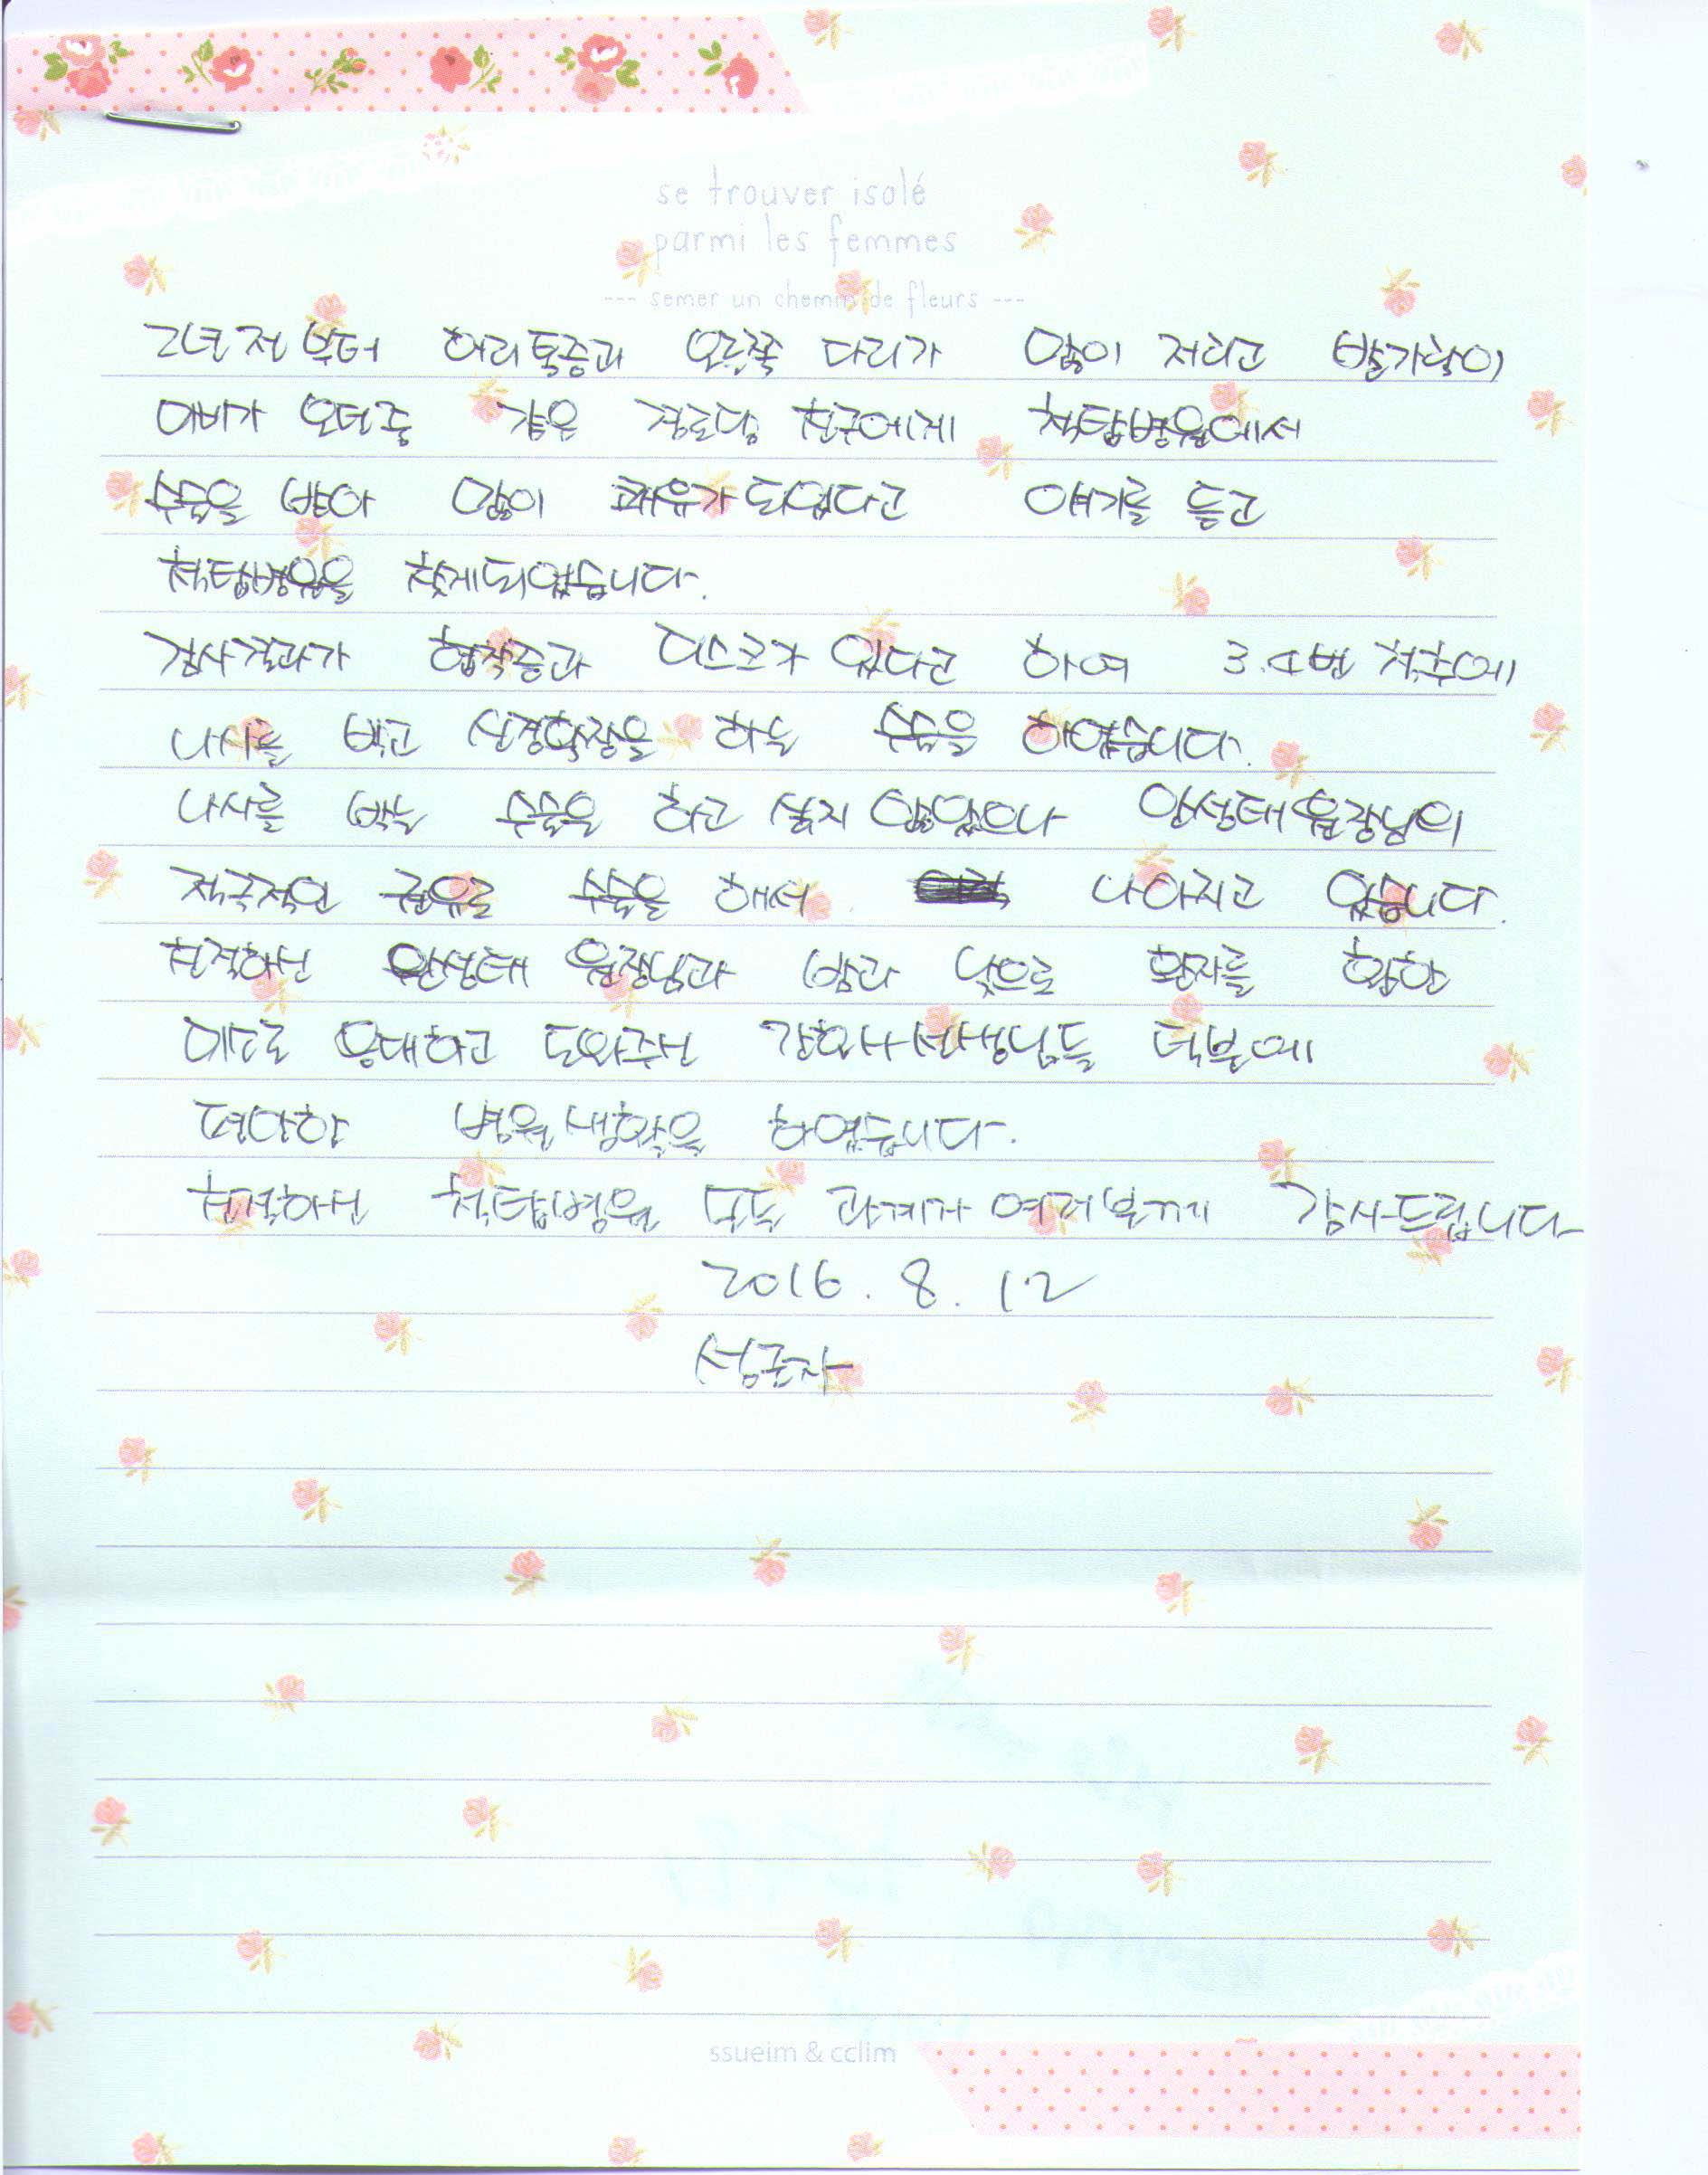 se trouver isolé
parmi les femmes
--- semer un chemin de fleurs ---
2년전 부터 허리통증과 오른쪽 다리가 많이 저리고 발가락이
마비가 오던중 같은 경로당 친구에게 척탑병원에서
수술을 받아 많이 쾌유가 되었다고 얘기를 듣고
척탑병원을 찾게되었습니다.
검사결과가 협착증과 디스크가 있다고 하여 3.4번 척추에
나사를 박고 신경확장을 하는 수술을 하였습니다.
나사를 박는 수술을 하고 싶지 않았으나 안성태원장님의
적극적인 권유로 수술을 해서 나아지고 있습니다.
친절하신 안성태 원장님과 밤과 낮으로 환자를 향한
미소로 응대하고 도와주신 간호사 선생님들 덕분에
편안한 병원생활을 하였습니다.
친절하신 척탑병원 모든 관계자 여러분께 감사드립니다
2016. 8. 12
성균자
ssueim & cclim